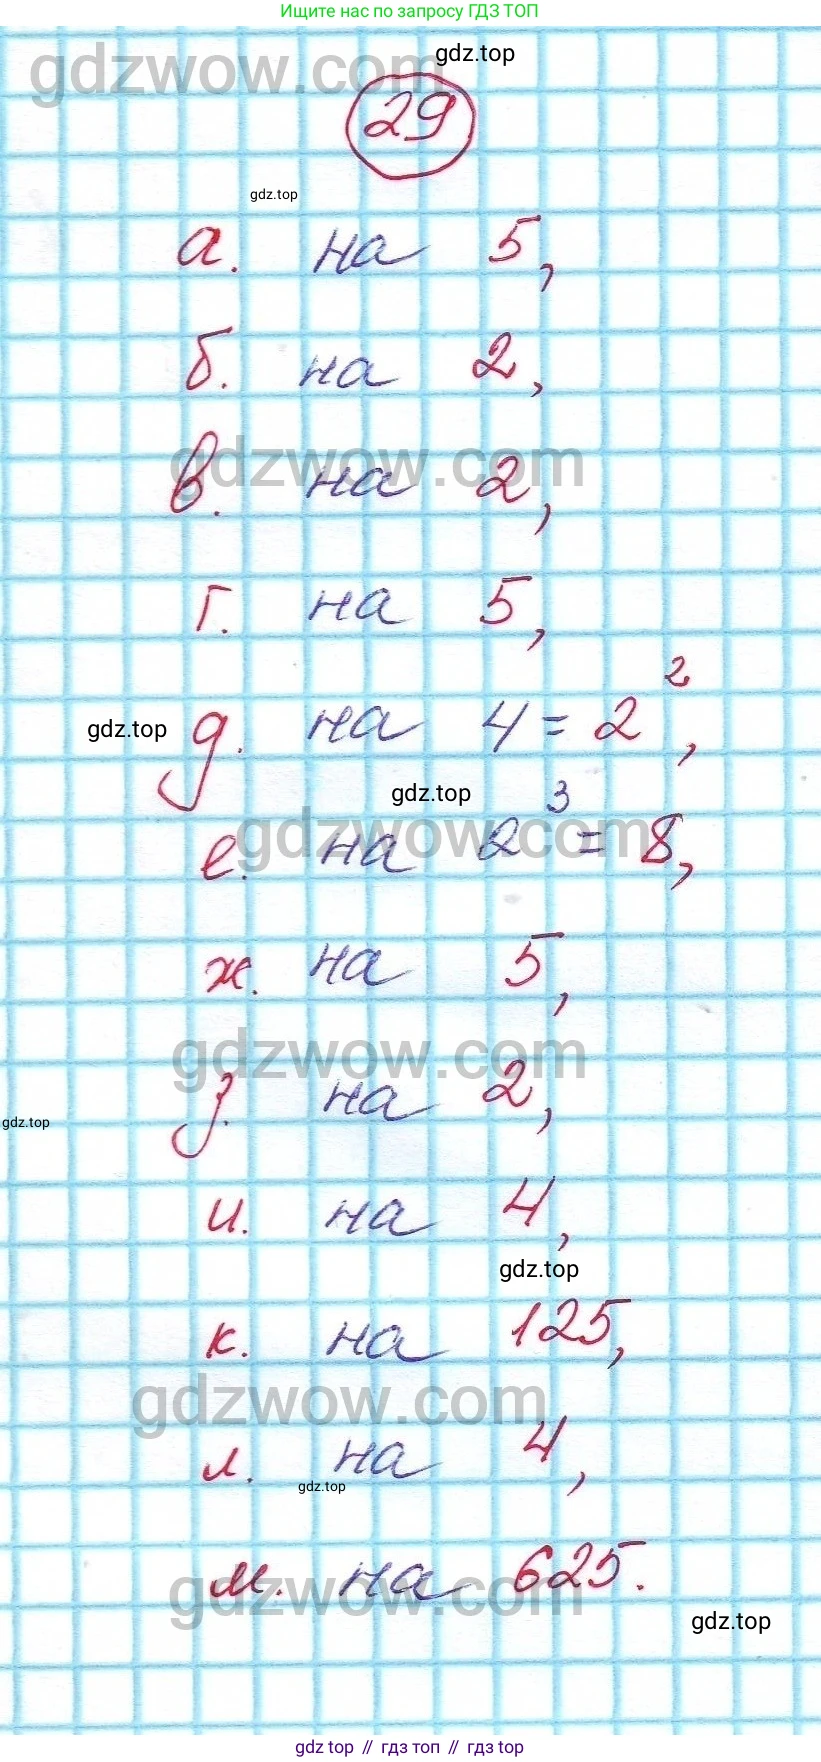 Ищите нас по запросу ГДЗ ТОП
gdzwow.com
gdz.top
29
gdz.top
а. на 5,
б. на 2,
gdzwow.com
в. на 2,
г. на 5,
д. на 4 = 2²,
gdz.top
gdz.top
gdzwow.com
е. на 2³ = 8,
ж. на 5,
gdzwow.com
з. на 2,
gdz.top
и. на 4,
gdz.top
к. на 125,
gdzwow.com
л. на 4,
gdz.top
м. на 625.
gdzwow.com
gdz.top
gdz top // гдз топ // gdz top